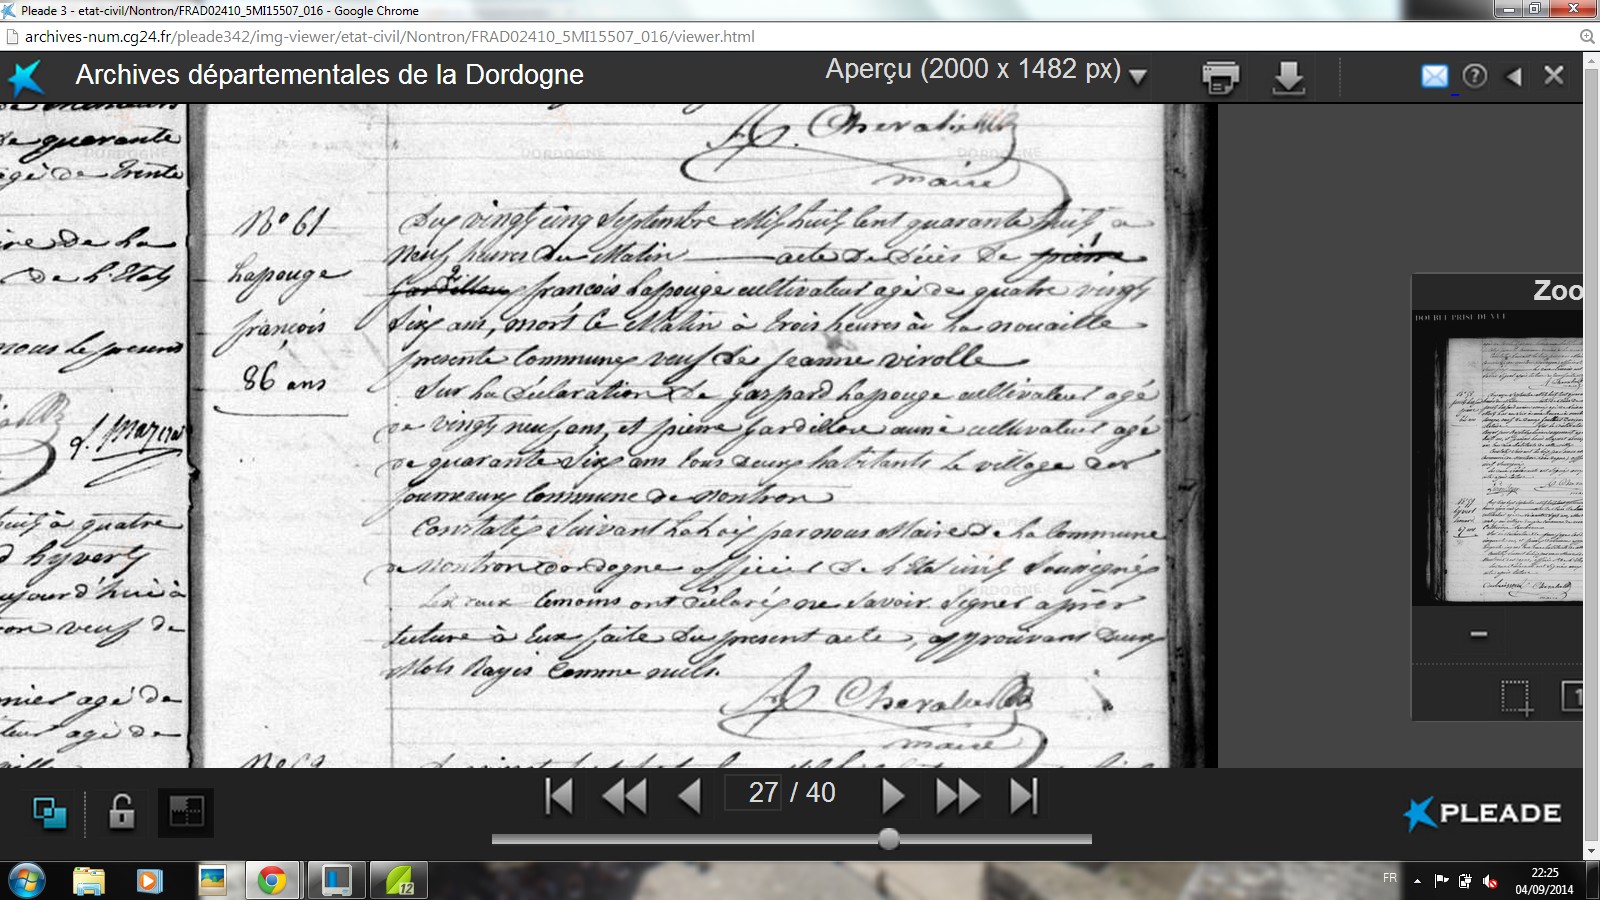 Pleade 3 - etat-civil/Nontron/FRAD02410_5MI15507_016 - Google Chrome
archives-num.cg24.fr/pleade342/img-viewer/etat-civil/Nontron/FRAD02410_5MI15507_016/viewer.html
Archives départementales de la Dordogne
Aperçu (2000 x 1482 px)
de quarante
agé de trente
ire de la
de l'Etat
nous le present
huit à quatre
d hyvert
aujourd'hui à
veuf de
agé de
agé de
A. Chevalier
maire
N° 61
Lapouge
françois
86 ans
Du vingt cinq Septembre Mil huit Cent quarante huit, a
Neuf heures du Matin acte de décès de pierre
fardillou françois Lapouge cultivateur agé de quatre vingt
Six ans, mort ce Matin à trois heures à La nouaille
presente Commune veuf de jeanne virolle
Sur La déclaration de gaspard Lapouge cultivateur agé
de vingt neuf ans, et pierre fardillou ainé cultivateur agé
de quarante Six ans tous deux habitants le village des
Commune de Nontron
Constaté Suivant La Loi par nous Maire de La Commune
de Nontron dordogne officier de l'Etat Civil Soussigné
Les temoins ont déclaré ne Savoir Signer après
lecture à Eux faite du present acte, approuvant deux
Mots Rayés Comme nuls.
A. Chevalier
maire
Zoo
DOUBLE PRISE DE VUE
27 / 40
PLEADE
FR
22:25
04/09/2014